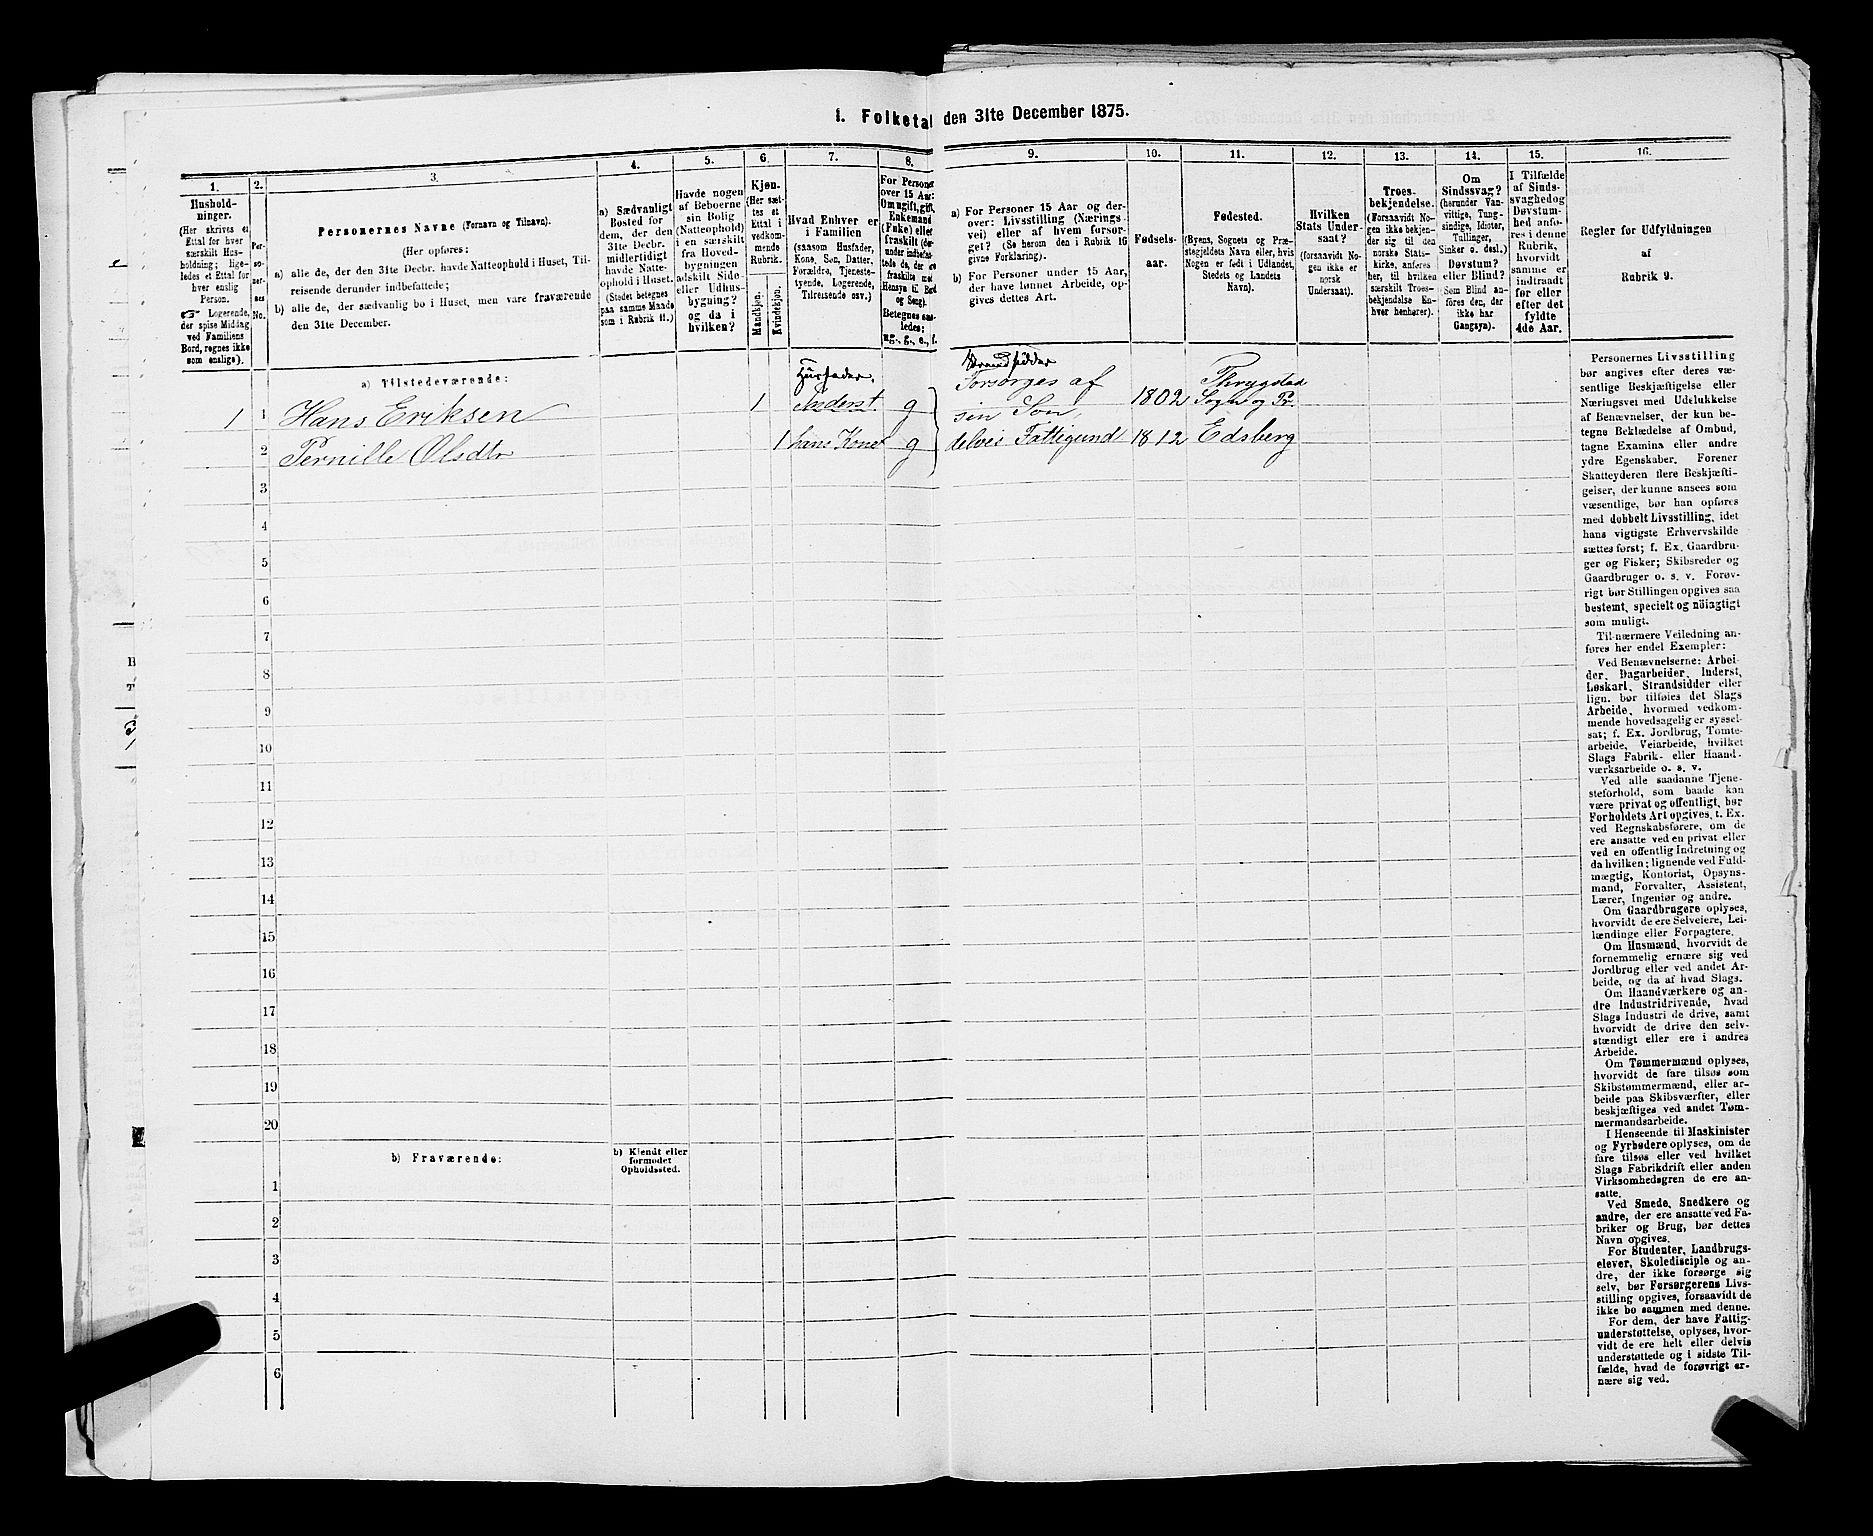 1. Folketal den 31te December 1875.
1.
2.
3.
4.
5.
6.
7.
8.
9.
10.
11.
12.
13.
14.
15.
16.
Hushold-
ninger.
(Her skrives et
Ettal for hver
særskilt Hus-
holdning; lige-
ledes et Ettal for
hver enslig
Person.
☞ Logerende,
der spise Middag
ved Familiens
Bord, regnes ikke
som enslige).
Per-
so-
ner-
nes
No.
Personernes Navne (Fornavn og Tilnavn).
(Her opføres:
a) alle de, der den 31te Decbr. havde Natteophold i Huset, Til-
reisende derunder indbefattede;
b) alle de, der sædvanlig bo i Huset, men vare fraværende
den 31te December.
a) Sædvanligt
Bosted for
dem, der den
31te Decbr.
midlertidigt
havde Natte-
ophold i Huset.
(Stedet betegnes
paa samme Maade
som i Rubrik 11.)
Havde nogen
af Beboerne
sin Bolig
(Natteophold)
i en særskilt
fra Hoved-
bygningen
adskilt Side
eller Udhus-
bygning?
og da i
hvilken?
Kjøn.
(Her sæt-
tes et
Ettal i
vedkom-
mende
Rubrik.
Mandkjøn.
Kvindekjøn.
Hvad Enhver er
i Familien
(saasom Husfader,
Kone, Søn, Datter,
Forældre, Tjeneste-
tyende, Logerende,
Tilreisende osv.)
For Personer
over 15 Aar:
Om ugift, gift,
Enkemand
(Enke) eller
fraskilt (der-
under indbefat-
tede de, der ere
fraskilte med
Hensyn til Bord
og Seng).
Betegnes saa-
ledes:
ug., g., e., f.
a) For Personer 15 Aar og der-
over: Livsstilling (Nærings-
vei) eller af hvem forsør-
get? (Se herom den i Rubrik 16
givne Forklaring).
b) For Personer under 15 Aar,
der have lønnet Arbeide, op-
gives dettes Art.
Fødsels-
aar.
Fødested.
(Byens, Sognets og Præ-
stegjeldets Navn eller, hvis
Nogen er født i Udlandet,
Stedets og Landets
Navn).
Hvilken
Stats Under-
saat?
(forsaavidt No-
gen ikke er
norsk
Undersaat).
Troes-
bekjendelse.
(Forsaavidt No-
gen ikke bekjen-
der sig til den
norske Stats-
kirke, anføres
her, til hvilken
særskilt Troes-
bekjendelse En-
hver henhører).
Om
Sindssvag?
(herunder Van-
vittige, Tung-
sindige, Idioter,
Tullinger,
Sinker o. desl.)
Døvstum?
eller Blind?
Som Blind an-
føres den, der
ikke har
Gangsyn).
I Tilfælde
af Sinds-
svaghed og
Døvstum-
hed anfø-
res i denne
Rubrik,
hvorvidt
samme er
indtraadt
før eller
efter det
fyldte
4de Aar.
Regler for Udfyldningen
af
Rubrik 9.
a) Tilstedeværende:
Husfader.
Strandsidder
1 1 Hans Eriksen 1 Inderst. g Forsørges af
sin Søn, 1802 Thrygstad
Sogn og Pr.
2 Pernille Olsdtr 1 hans Kone g delvis Fattigund 1812 Edsberg
3
4
5
6
7
8
9
10
11
12
13
14
15
16
17
18
19
20
b) Fraværende:
b) Kjendt eller
formodet
Opholdssted.
1
2
3
4
5
6
Personernes Livsstilling
bør angives efter deres væ-
sentlige Beskjæftigelse eller
Næringsvei med Udelukkelse
af Benævnelser, der kun be-
tegne Beklædelse af Ombud,
tagne Examina eller andre
ydre Egenskaber. Forener
Skatteyderen flere Beskjæfti-
gelser, der kunne ansees som
væsentlige, bør han opføres
med dobbelt Livsstilling, idet
hans vigtigste Erhvervskilde
sættes først; f. Ex. Gaardbru-
ger og Fisker; Skibsreder og
Gaardbruger o. s. v. Forøv-
rigt bør Stillingen opgives saa
bestemt, specielt og nöiagtigt
som muligt.
Til nærmere Veiledning an-
føres her endel Exempler:
Ved Benævnelserne: Arbei-
der, Dagarbeider, Inderst,
Løskarl, Strandsidder eller
lign. bør tilføies det Slags
Arbeide, hvormed vedkom-
mende hovedsagelig er syssel-
sat; f. Ex. Jordbrug, Tomte-
arbeide, Veiarbeide, hvilket
Slags Fabrik- eller Haand-
værksarbeide o. s. v.
Ved alle saadanne Tjene-
steforhold, som baade kan
være privat og offentligt, bør
Forholdets Art opgives, t. Ex.
ved Regnskabsførere, om de
ere ansatte ved en privat eller
ved en offentlig Indretning og
da hvilken; lignende ved Fuld-
mægtig, Kontorist, Opsyns-
mand, Forvalter, Assistent,
Lærer, Ingeniør og andre.
Om Gaardbrugere oplyses,
hvorvidt de ere Selveiere, Lei-
lændinge eller Forpagtere.
Om Husmænd, hvorvidt de
fornemmelig ernære sig ved
Jordbrug eller ved andet Ar-
beide, og da af hvad Slags.
Om Haandværkere og an-
dre Industridrivende, hvad
Slags Industri de drive, samt
hvorvidt de drive den selv-
stændigt eller ere i andres
Arbeide.
Om Tømmermænd oplyses,
hvorvidt de fare tilsøs som
Skibstømmermænd, eller ar-
beide paa Skibsværfter, eller
beskjæftiges ved andet Tøm-
mermandsarbeide.
I Henseende til Maskinister
og Fyrbødere oplyses, om de
fare tilsøs eller ved hvilket
Slags Fabrikdrift eller anden
Virksomhedsgren de ere an-
satte.
Ved Smede, Snedkere og
andre, der ere ansatte ved Fa-
briker og Brug, bør dettes
Navn opgives.
For Studenter, Landbrugs-
elever, Skoledisciple og an-
dre, der ikke forsørge sig
selv, bør Forsørgerens Livs-
stilling opgives, forsaavidt de
ikke bo sammen med denne.
For dem, der have Fattig-
understøttelse, oplyses, hvor-
vidt de ere helt eller delvis
understøttede og i sidste Til-
fælde, hvad de forøvrigt er-
nære sig ved.